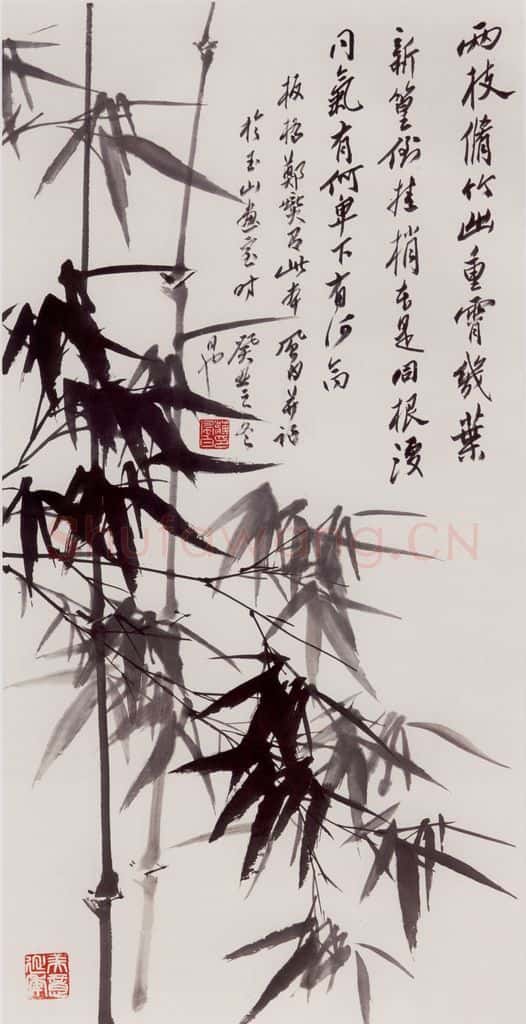 兩枝脩竹出重霄幾葉
新篁倒挂梢本是同根復
同氣有何卑下有何高
板橋鄭燮有此本
於玉山畫室時 癸丑之冬
Shufawang.CN